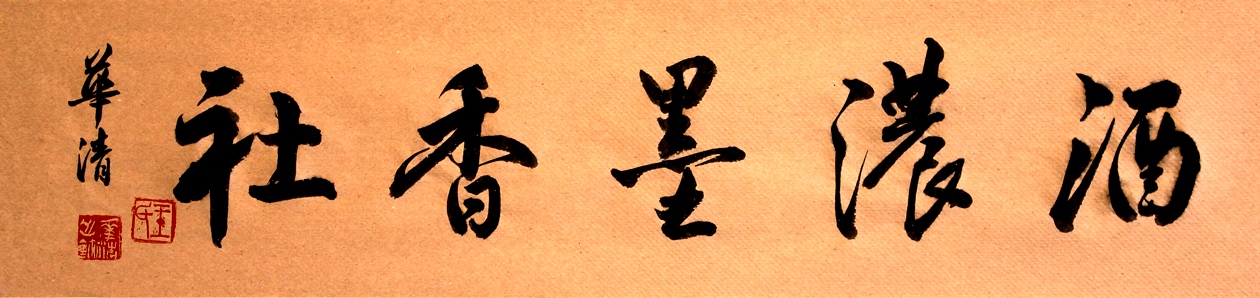 酒濃墨香社
華清